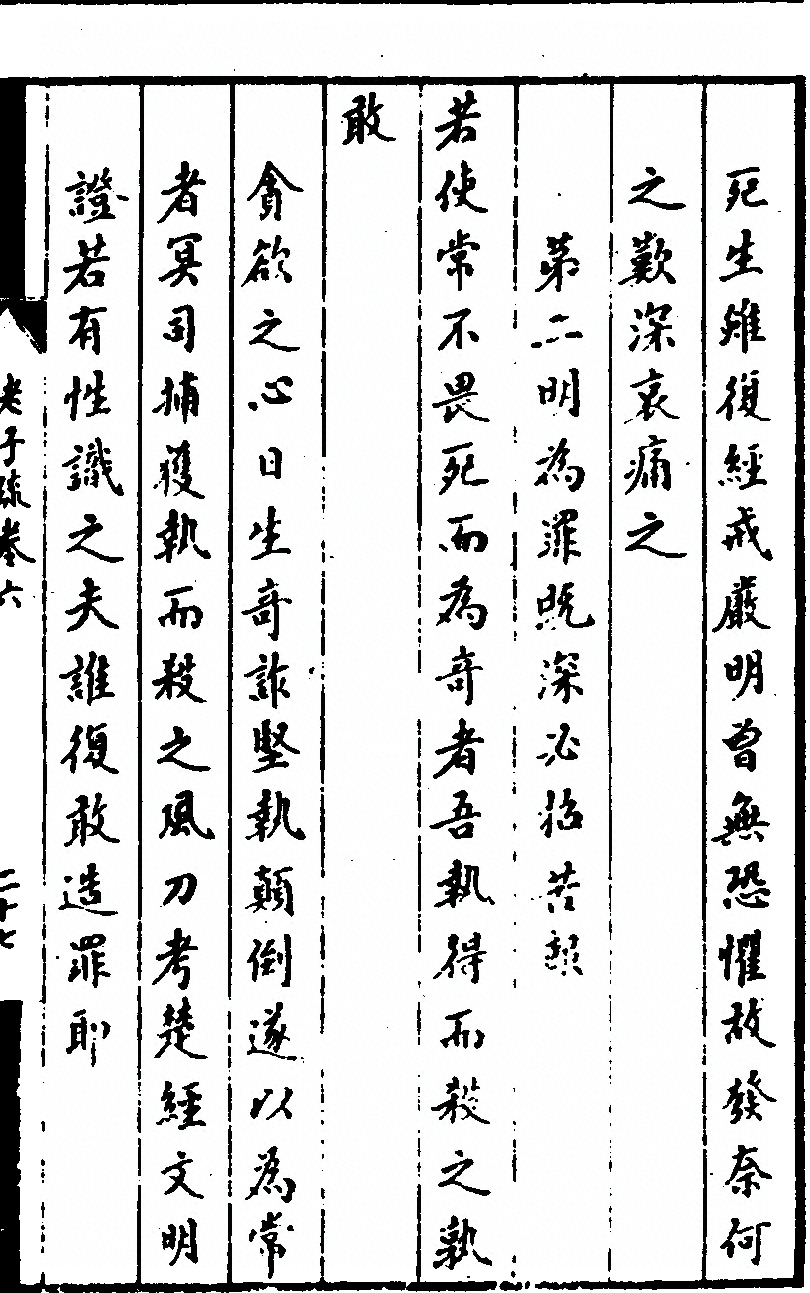 死生雖復經戒嚴明曾無恐懼故發奈何
之歎深哀痛之
第二明為罪既深必招苦報
若使常不畏死而為奇者吾執得而殺之孰
敢
貪欲之心日生奇詐堅執顛倒遂以為常
者冥司捕獲執而殺之風刀考楚經文明
證若有性識之夫誰復敢造罪耶
老子疏卷六
二十七